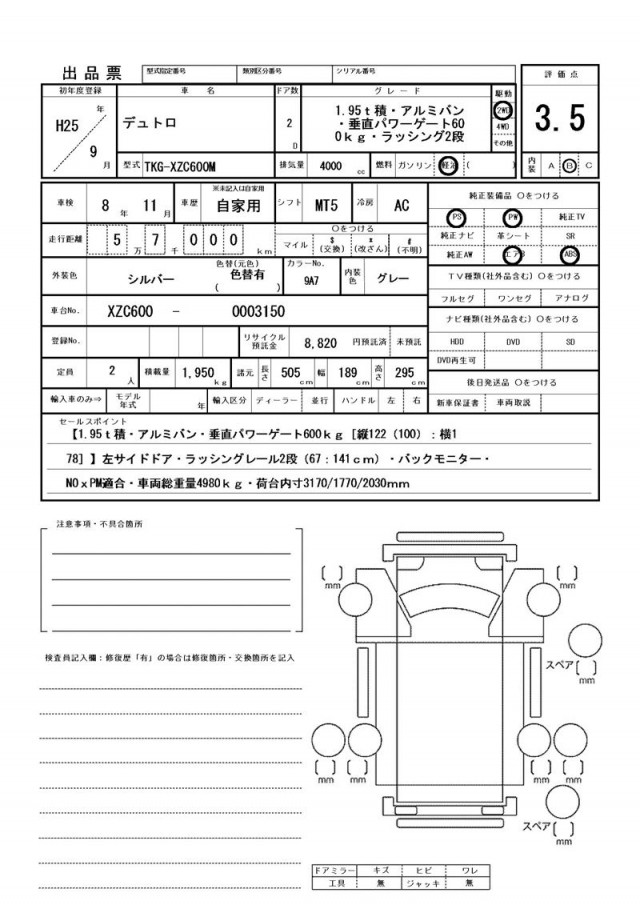 出品票 型式指定番号 類別区分番号 シリアル番号
初年度登録 車名 ドア数 グレード 駆動 評価点
H25 年 9 月 デュトロ 2 D 1.95ｔ積・アルミバン
・垂直パワーゲート60
0ｋg・ラッシング2段 2WD 4WD その他 3.5
型式 TKG-XZC600M 排気量 4000 cc 燃料 ガソリン 軽油 ( ) 内装 A B C
車検 8 年 11 月 車歴 ※未記入は自家用 自家用 シフト MT5 冷房 AC
走行距離 5 万 7 千 0 0 0 km ○をつける マイル $ (交換) * (改ざん) # (不明)
外装色 シルバー 色替(元色) 色替有 ( ) カラーNo. 9A7 内装色 グレー
車台No. XZC600 － 0003150
登録No. リサイクル預託金 8,820 円預託済 未預託
定員 2 人 積載量 1,950 kg 諸元 長さ 505 cm 幅 189 cm 高さ 295 cm
輸入車のみ⇒ モデル年式 年 輸入区分 ディーラー 並行 ハンドル 左 右
純正装備品 ○をつける
PS PW 純正TV
純正ナビ 革シート SR
純正AW エアB ABS
ＴＶ種類(社外品含む) ○をつける
フルセグ ワンセグ アナログ
ナビ種類(社外品含む) ○をつける
HDD DVD SD
DVD再生可
後日発送品 ○をつける
新車保証書 車両取説
セールスポイント
【1.95ｔ積・アルミバン・垂直パワーゲート600ｋｇ［縦122（100）：横1
78］】左サイドドア・ラッシングレール2段（67：141ｃｍ）・バックモニター・
NOｘPM適合・車両総重量4980ｋｇ・荷台内寸3170/1770/2030mm
注意事項・不具合箇所
検査員記入欄：修復歴「有」の場合は修復箇所・交換箇所を記入
[ ] mm [ ] mm
スペア [ ] mm
[ ] mm [ ] mm [ ] mm [ ] mm
スペア [ ] mm
ドアミラー キズ ヒビ ワレ
工具 無 ジャッキ 無